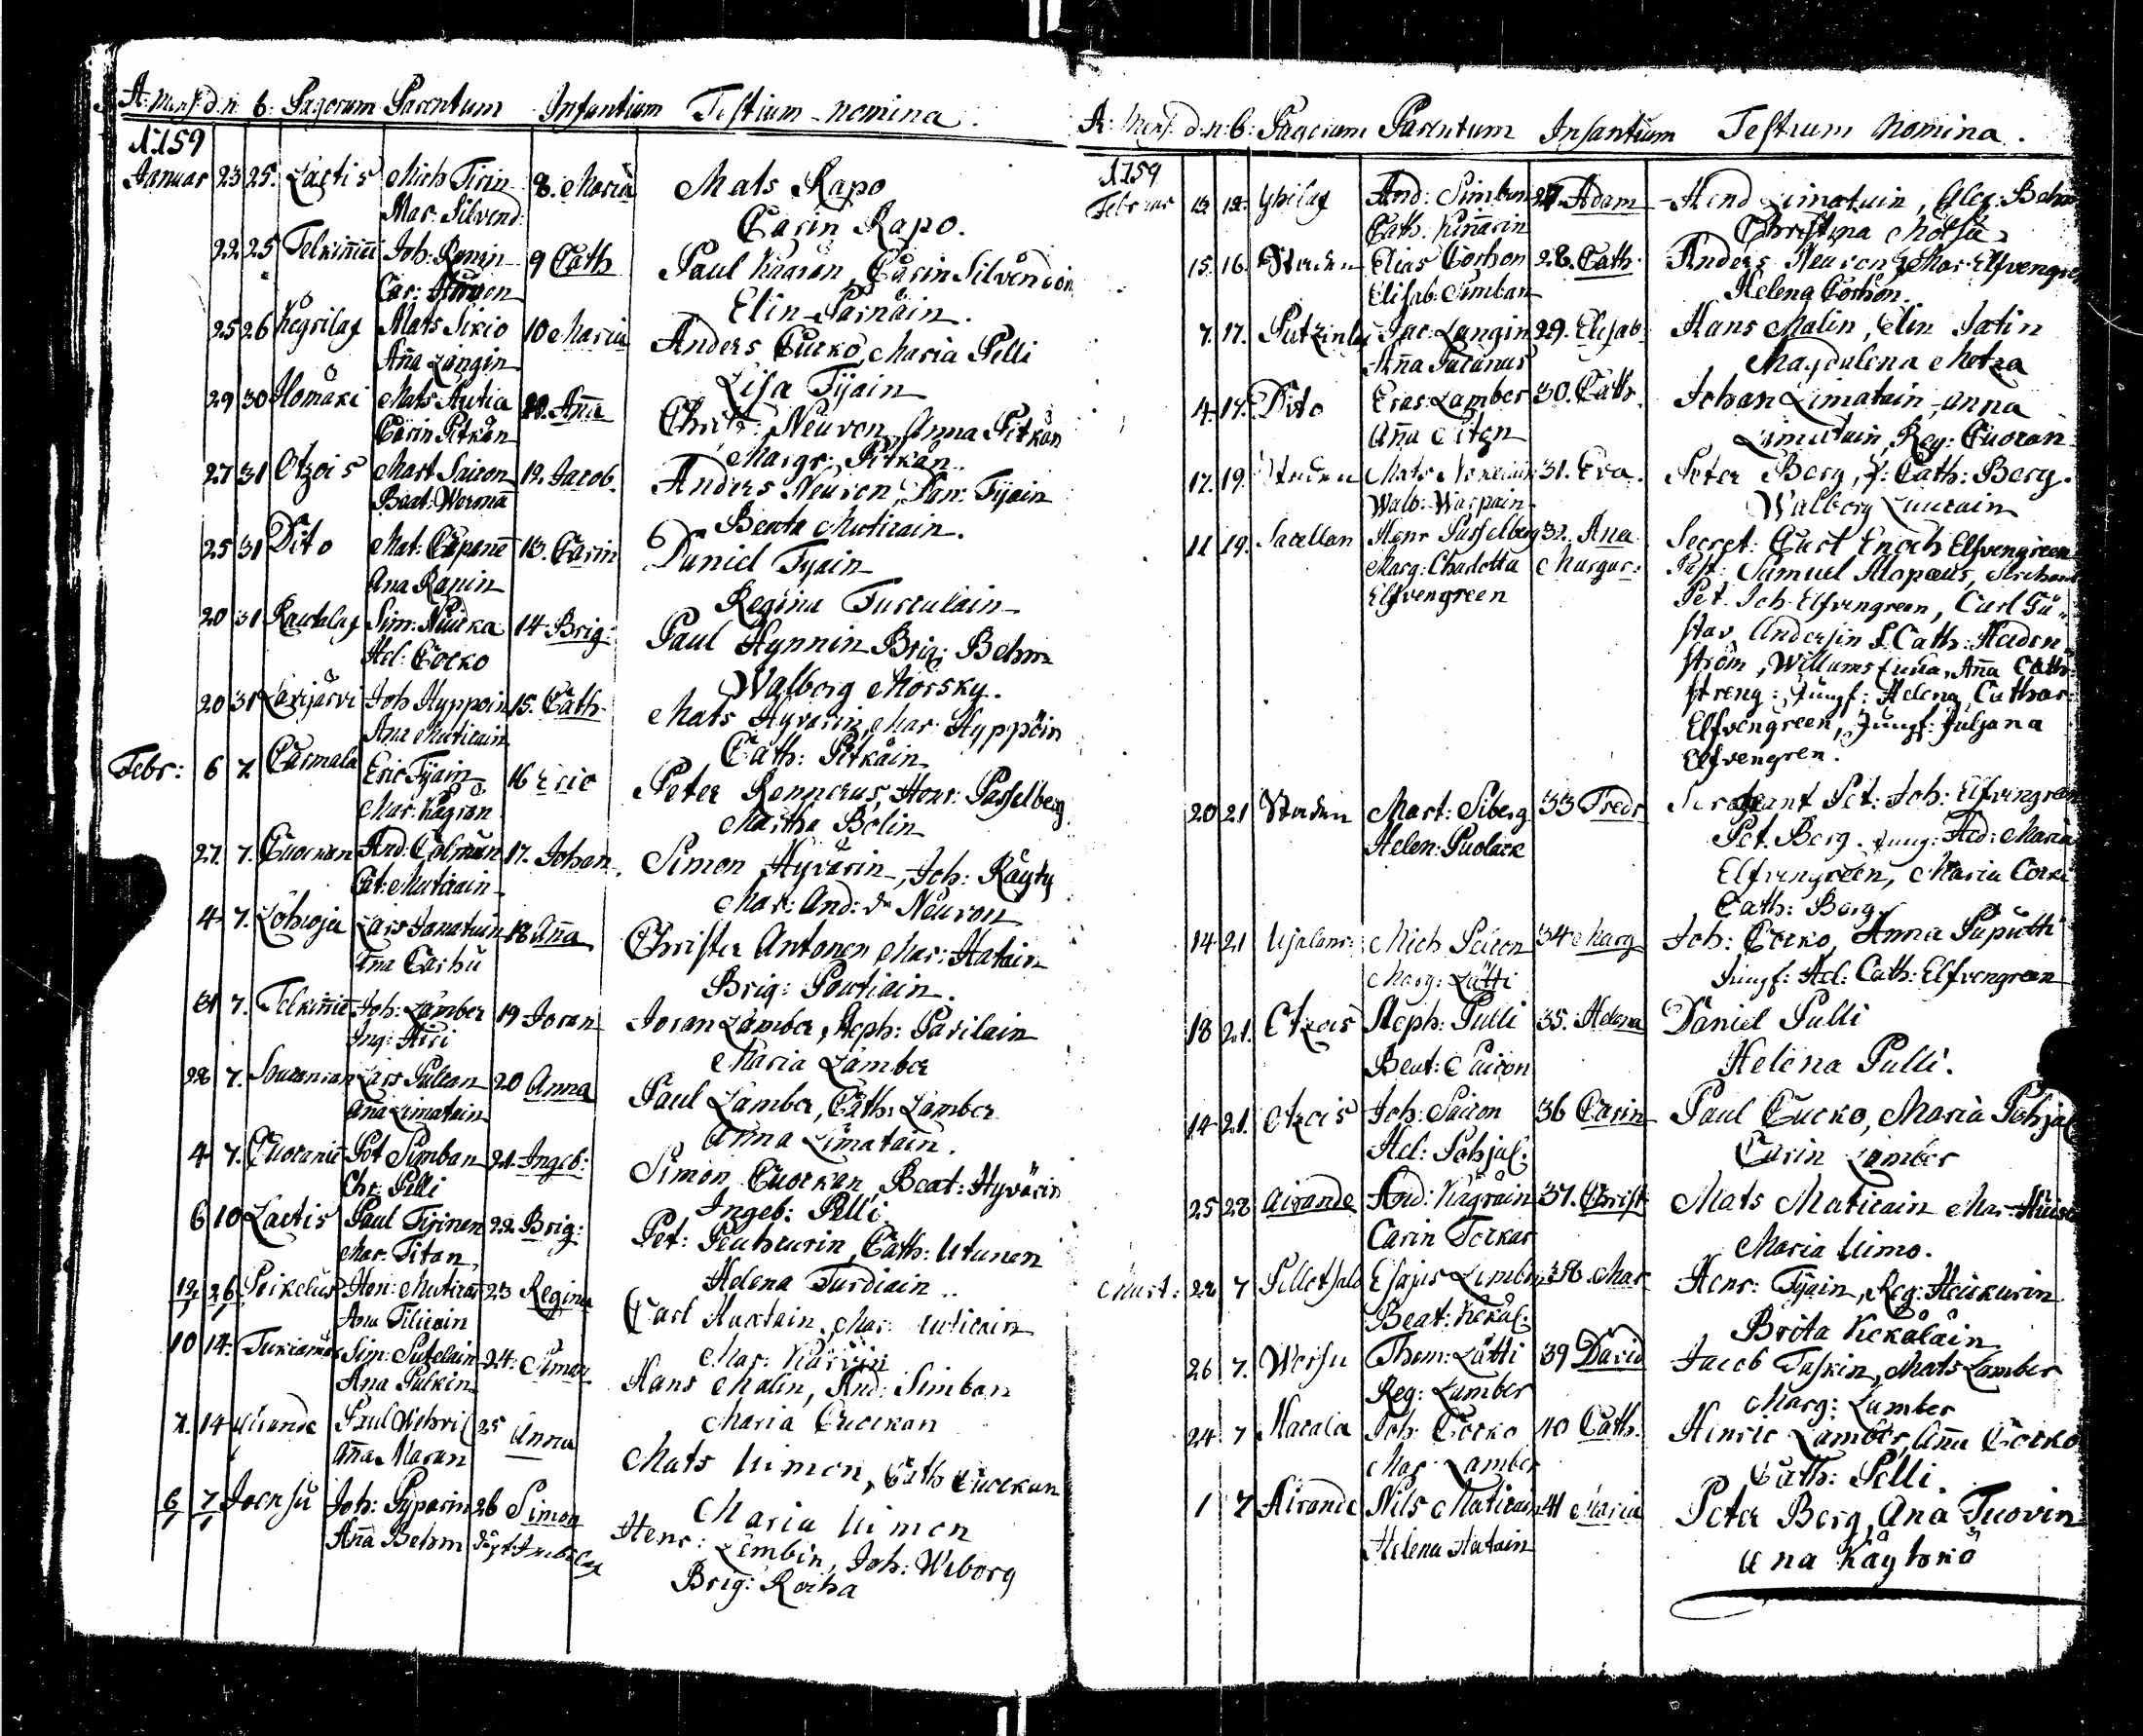 A: Mens. d. n. b. Pagorum Parentum Infantium Testium nomina
1759
Januar 23 25. Laetis Mich Tirin 8. Maria Mats Rapo
Mar: Silvend: Carin Rapo.
22 25 Telkinnie Joh: Ronin 9 Cath Paul Kagran, Carin Silvendoin
Car: Elin Parnain.
25 26 Kegrilax Mats Sikio 10 Maria Anders Cucko, Maria Pelli
Aña Langin Lisa Tijain
29 30 Homäki Mats Autia 11. Aña Christ: Neuvon, Anna Pitkän
Carin Pitkän Margr: Pitkän.
27 31 Otzois Mart Saicon 12. Jacob. Anders Neuvon, Tijain
Beat: Worona Beata Muticain.
25 31 Dito Mat: Capone 13. Carin Daniel Tyain
Ana Ranin Regina Turculain
20 31 Rautalax Sim: Nuicka 14. Brig: Paul Hynnin Brig: Behm
Hel: Cocko Walborg Morsky.
20 31 Carijärvi Joh Hyppoin 15. Cath. Mats Hyvärin, Mar: Hyppöin
Ana Muticain Cath: Pitkäin
Febr: 6 7. Cärmala Eric Tyain 16 Eric Peter Rennerus, Henr: Passelberg
Mar: Kagran Martha Bolin
27. 7. Cuockan And: Colmun 17. Johan. Simon Hyvärin, Joh: Räyty
Cat: Muticain Mar: And: dr Neuvon
4 7. Lohioja Lars Hanatuin 18 Aña Christer Antonen Mar: Hatain
Aña Carhu Brig: Poutiain.
31 7. Telkinnie Joh: Lamber 19 Joran Joran Lamber, Steph: Parilain
Ing: Hiri Maria Lamber
28 7. Souranian Lars Pulean 20 Anna Paul Lamber, Cath: Lamber
Aña Limatain Anna Limatain.
4 7. Cuoranie Pet Simban 21. Ingeb: Simon Cuockan Beat: Hyvärin
Chr: Pelli Ingeb: Pelli
6 10 Laetis Paul Tijinen 22 Brig: Pet: Peuhcurin, Cath: Utunen
Mar: Titan Helena Turdiain
12 26 Poikelus Hen: Muticai 23 Regina Carl Huxtain, Mar: Muticain
Ana Tilicain Mar: Kärein
10 14. Tuxiamäk Sim: Sutelain 24. Simon Hans Malin, And: Simban
Ana Pulkin Maria Cuockan
7. 14 Airande Paul Wehvil 25 Anna Mats Uimon, Cath Cuockan
Aña Naran Maria Uimon
6 7 Joensu Joh: Pyparin 26 Simon Henr: Lembin, Joh: Wiborg
Aña Behm Brig: Roiha
A: Mens. d. n: b: Pagorum Parentum Infantium Testium nomina.
1759
Februar 13 18 Yhilax And: Simban 27. Adam Hend Limatain, Alex: Behm
Cath. Kiñarin Christina Motsu
15. 16. Staden Elias Corhon 28. Cath. Anders Neuvon, Mar: Elfvengre
Elisab: Simban Helena Corhon.
7. 17. Putzinlax Jac: Langin 29. Elisab. Hans Malin, Elin Jatin
Aña Pacanus Magdalena Motza
4. 17. Dito Eras: Lamber 30. Cath. Johan Limatain, Anna
Aña Eitan Limatain, Reg: Cuoran
17. 19. Staden Mats 31. Eva. Peter Berg, J: Cath: Berg.
Walb: Warpain Walborg Luucain
11 19. Sacellan Henr Passelberg 32. Ana Secret: Curt Enoch Elfvengreen
Marg: Charlotta Margar: Past: Samuel Alopæus,
Elfvengreen Pet. Joh. Elfvengreen, Carl Gu-
stav Andersin L. Cath: Heden-
ström, Anna Cath:
streng: Jungf: Helena Cathar:
Elfvengreen, Jungf: Juljana
Elfvengren.
20 21 Staden Mart: Siberg 33 Fredr Sergeant Pet: Joh: Elfvengren
Helen: Puolack Pet. Berg. Jung: Hed: Maria
Elfvengreen, Maria Cocki
Cath: Berg.
14 21 Mich Saicon 34 Marg Joh: Cocko, Anna Paputti
Marg: Lätti Jungf: Hel: Cath: Elfvengreen
18 21. Otzois Steph: Pulli 35. Helena Daniel Pulli
Beat: Saicon Helena Pulli.
14 21. Otzois Joh: Saicon 36 Carin Paul Cucko, Maria Pohjal
Hel: Pohjal: Carin Lamber
25 28 Airande And: Kagrain 37. Christ Mats Maticain Mar:
Carin Tockar Maria Uimo.
Mart: 28 7 Pellotsalo Esajas Lembin 38 Mar Henr: Tijain, Reg: Heickurin
Beat: Kekäl: Brita Kekäläin
26 7. Worsu Thom: Lätti 39 David Jacob Taskin, Mats Lamber
Reg: Lamber Marg: Lamber
24. 7 Hacala Joh: Cocko 40 Cath. Henric Lamber, Aña Cocko
Mar: Lamber Cath: Pelli.
1 7 Airande Nils Maticain 41 Maria Peter Berg, Ana Tuovin
Helena Hatain Ana Käyhkö